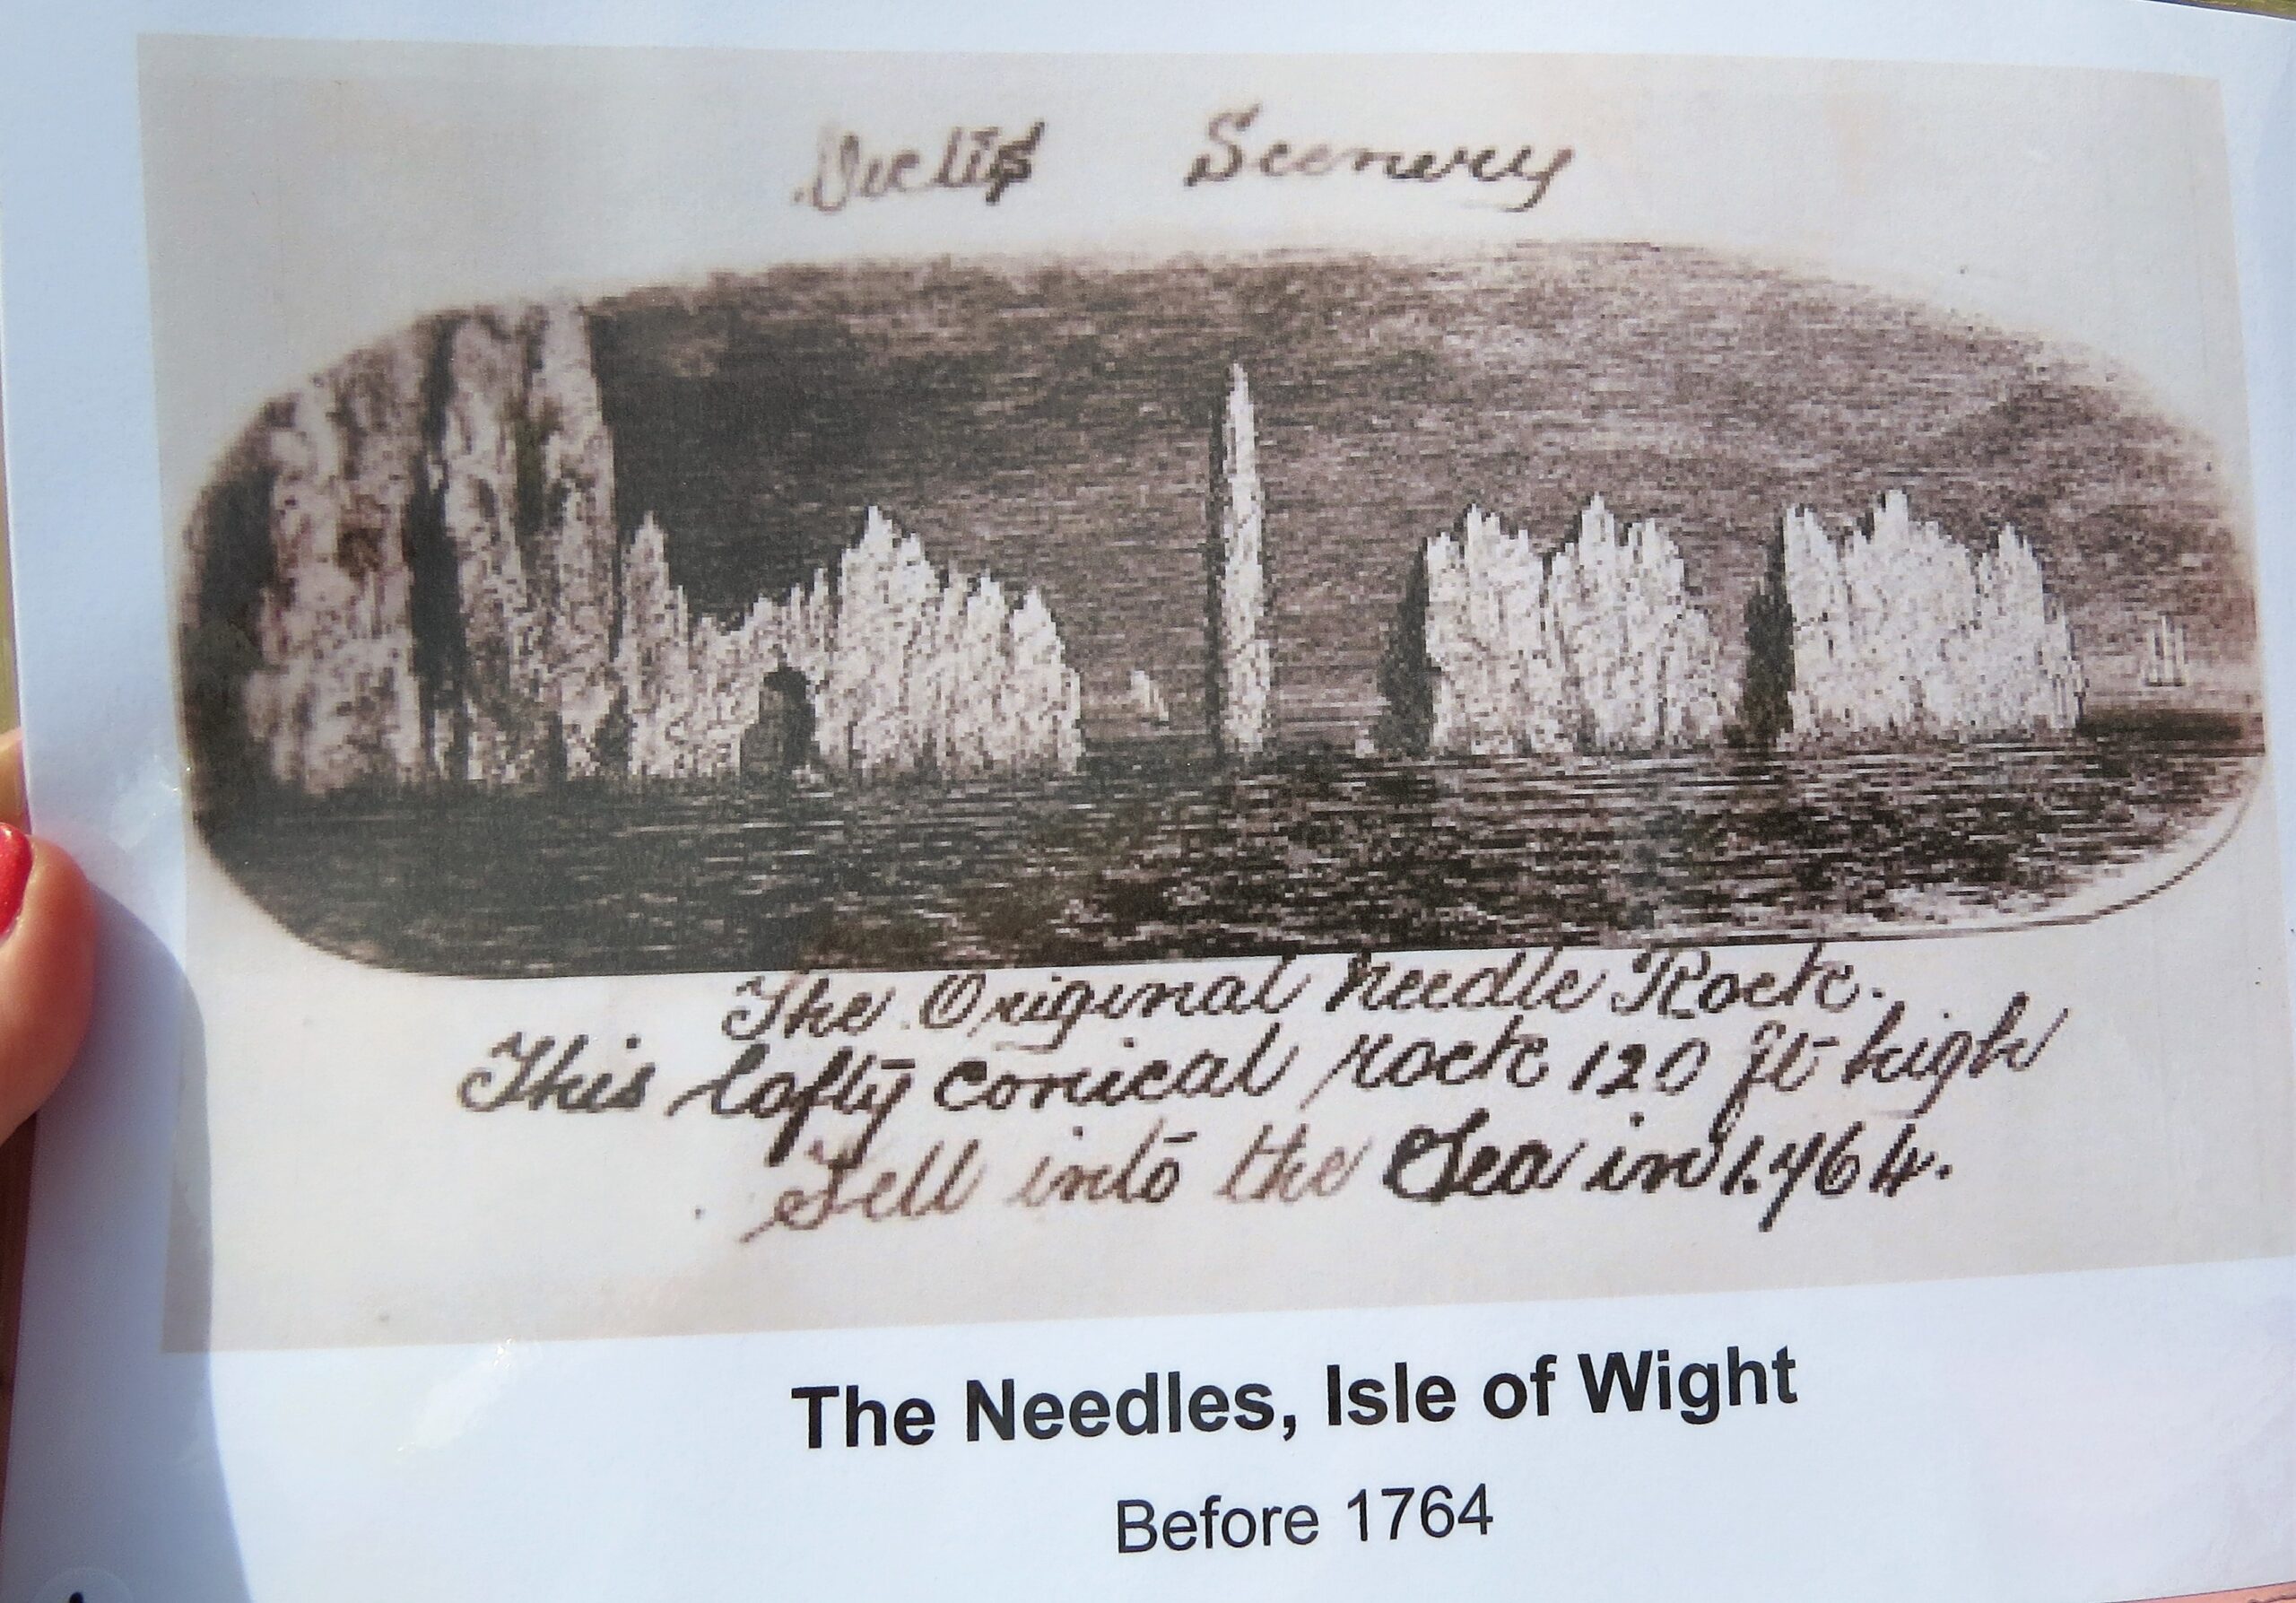 Scenery
The Original Needle Rock.
This lofty conical rock 120 ft high
Fell into the Sea in 1.764.
The Needles, Isle of Wight
Before 1764